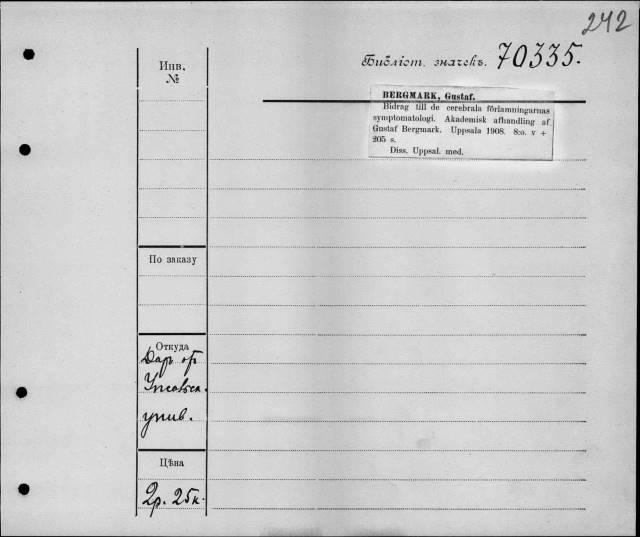 242
Библіот. значекъ. 70335.
Инв.
№
BERGMARK, Gustaf.
Bidrag till de cerebrala förlamningarnas
symptomatologi. Akademisk afhandling af
Gustaf Bergmark. Uppsala 1908. 8:o. v +
205 s.
Diss. Uppsal. med.
По заказу
Откуда
Даръ от
Упсальск.
унив.
Цѣна
2р. 25к.